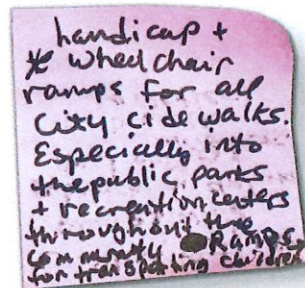 handicap +
* wheelchair
ramps for all
city cide walks.
Especially into
the public parks
+ recreation centers
throughout the
community Ramps
for transpoting children